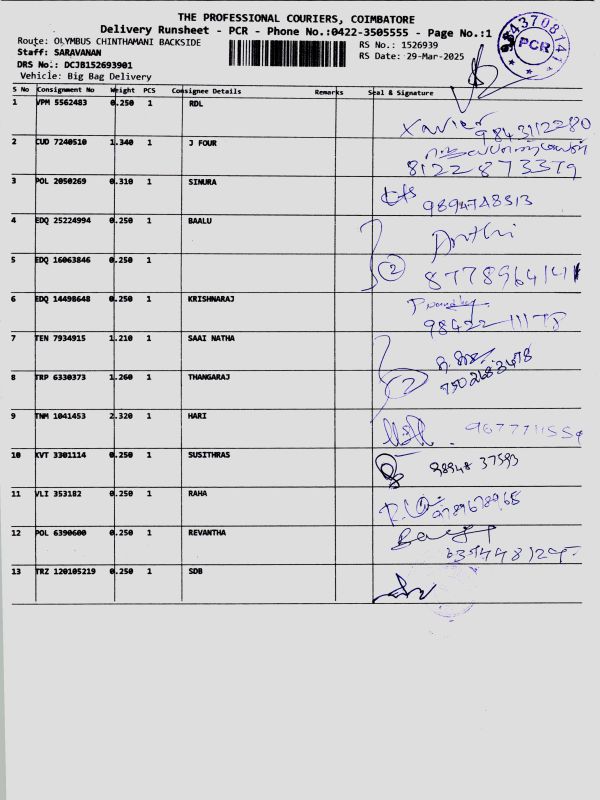 THE PROFESSIONAL COURIERS, COIMBATORE
Delivery Runsheet - PCR - Phone No.:0422-3505555 - Page No.:1
Route: OLYMBUS CHINTHAMANI BACKSIDE
RS No.: 1526939
Staff: SARAVANAN
RS Date: 29-Mar-2025
DRS No.: DCJB152693901
Vehicle: Big Bag Delivery
9843708141
PCR
S No Consignment No Weight PCS Consignee Details Remarks Seal & Signature
1 VPM 5562483 0.250 1 RDL
Xavier 9843112280
2 CUD 7240510 1.340 1 J FOUR
8122873379
3 POL 2050269 0.310 1 SINURA
9894748313
4 EDQ 25224994 0.250 1 BAALU
5 EDQ 16063846 0.250 1
2 8778964141
6 EDQ 14498648 0.250 1 KRISHNARAJ
98422 11178
7 TEN 7934915 1.210 1 SAAI NATHA
8 TRP 6330373 1.260 1 THANGARAJ
2 7502683478
9 TNM 1041453 2.320 1 HARI
9677711554
10 KVT 3301114 0.250 1 SUSITHRAS
98948 37593
11 VLI 353182 0.250 1 RAHA
9789678965
12 POL 6390600 0.250 1 REVANTHA
13 TRZ 120105219 0.250 1 SDB